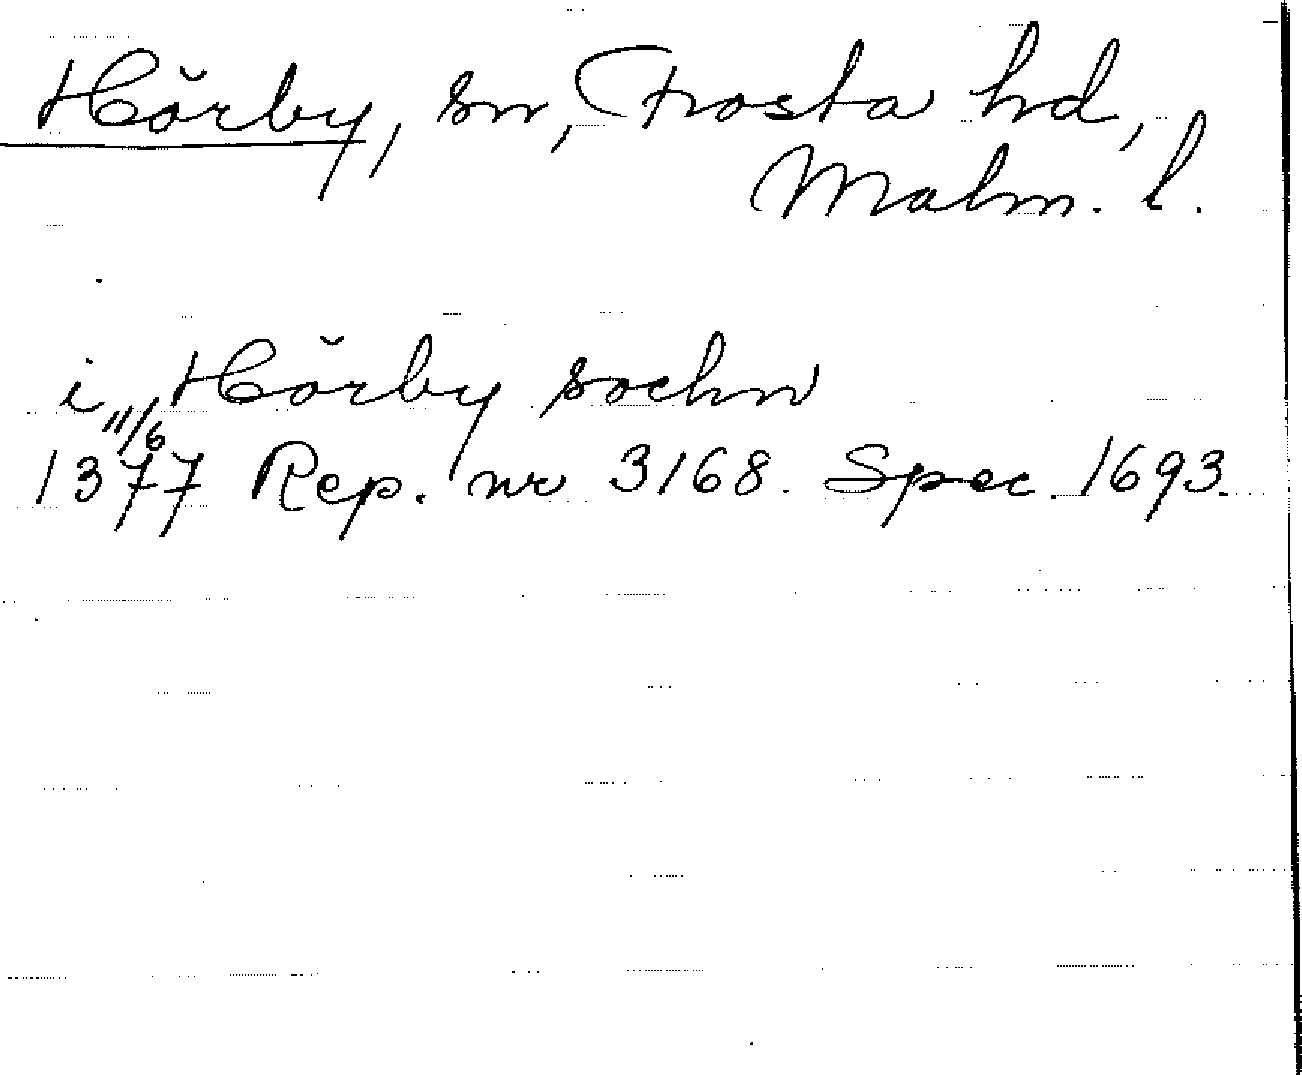 Hörby, sn, Frosta hd,
Malm. l.
i Hörby sochn
11/6
1377 Rep. nr 3168. Spec. 1693.